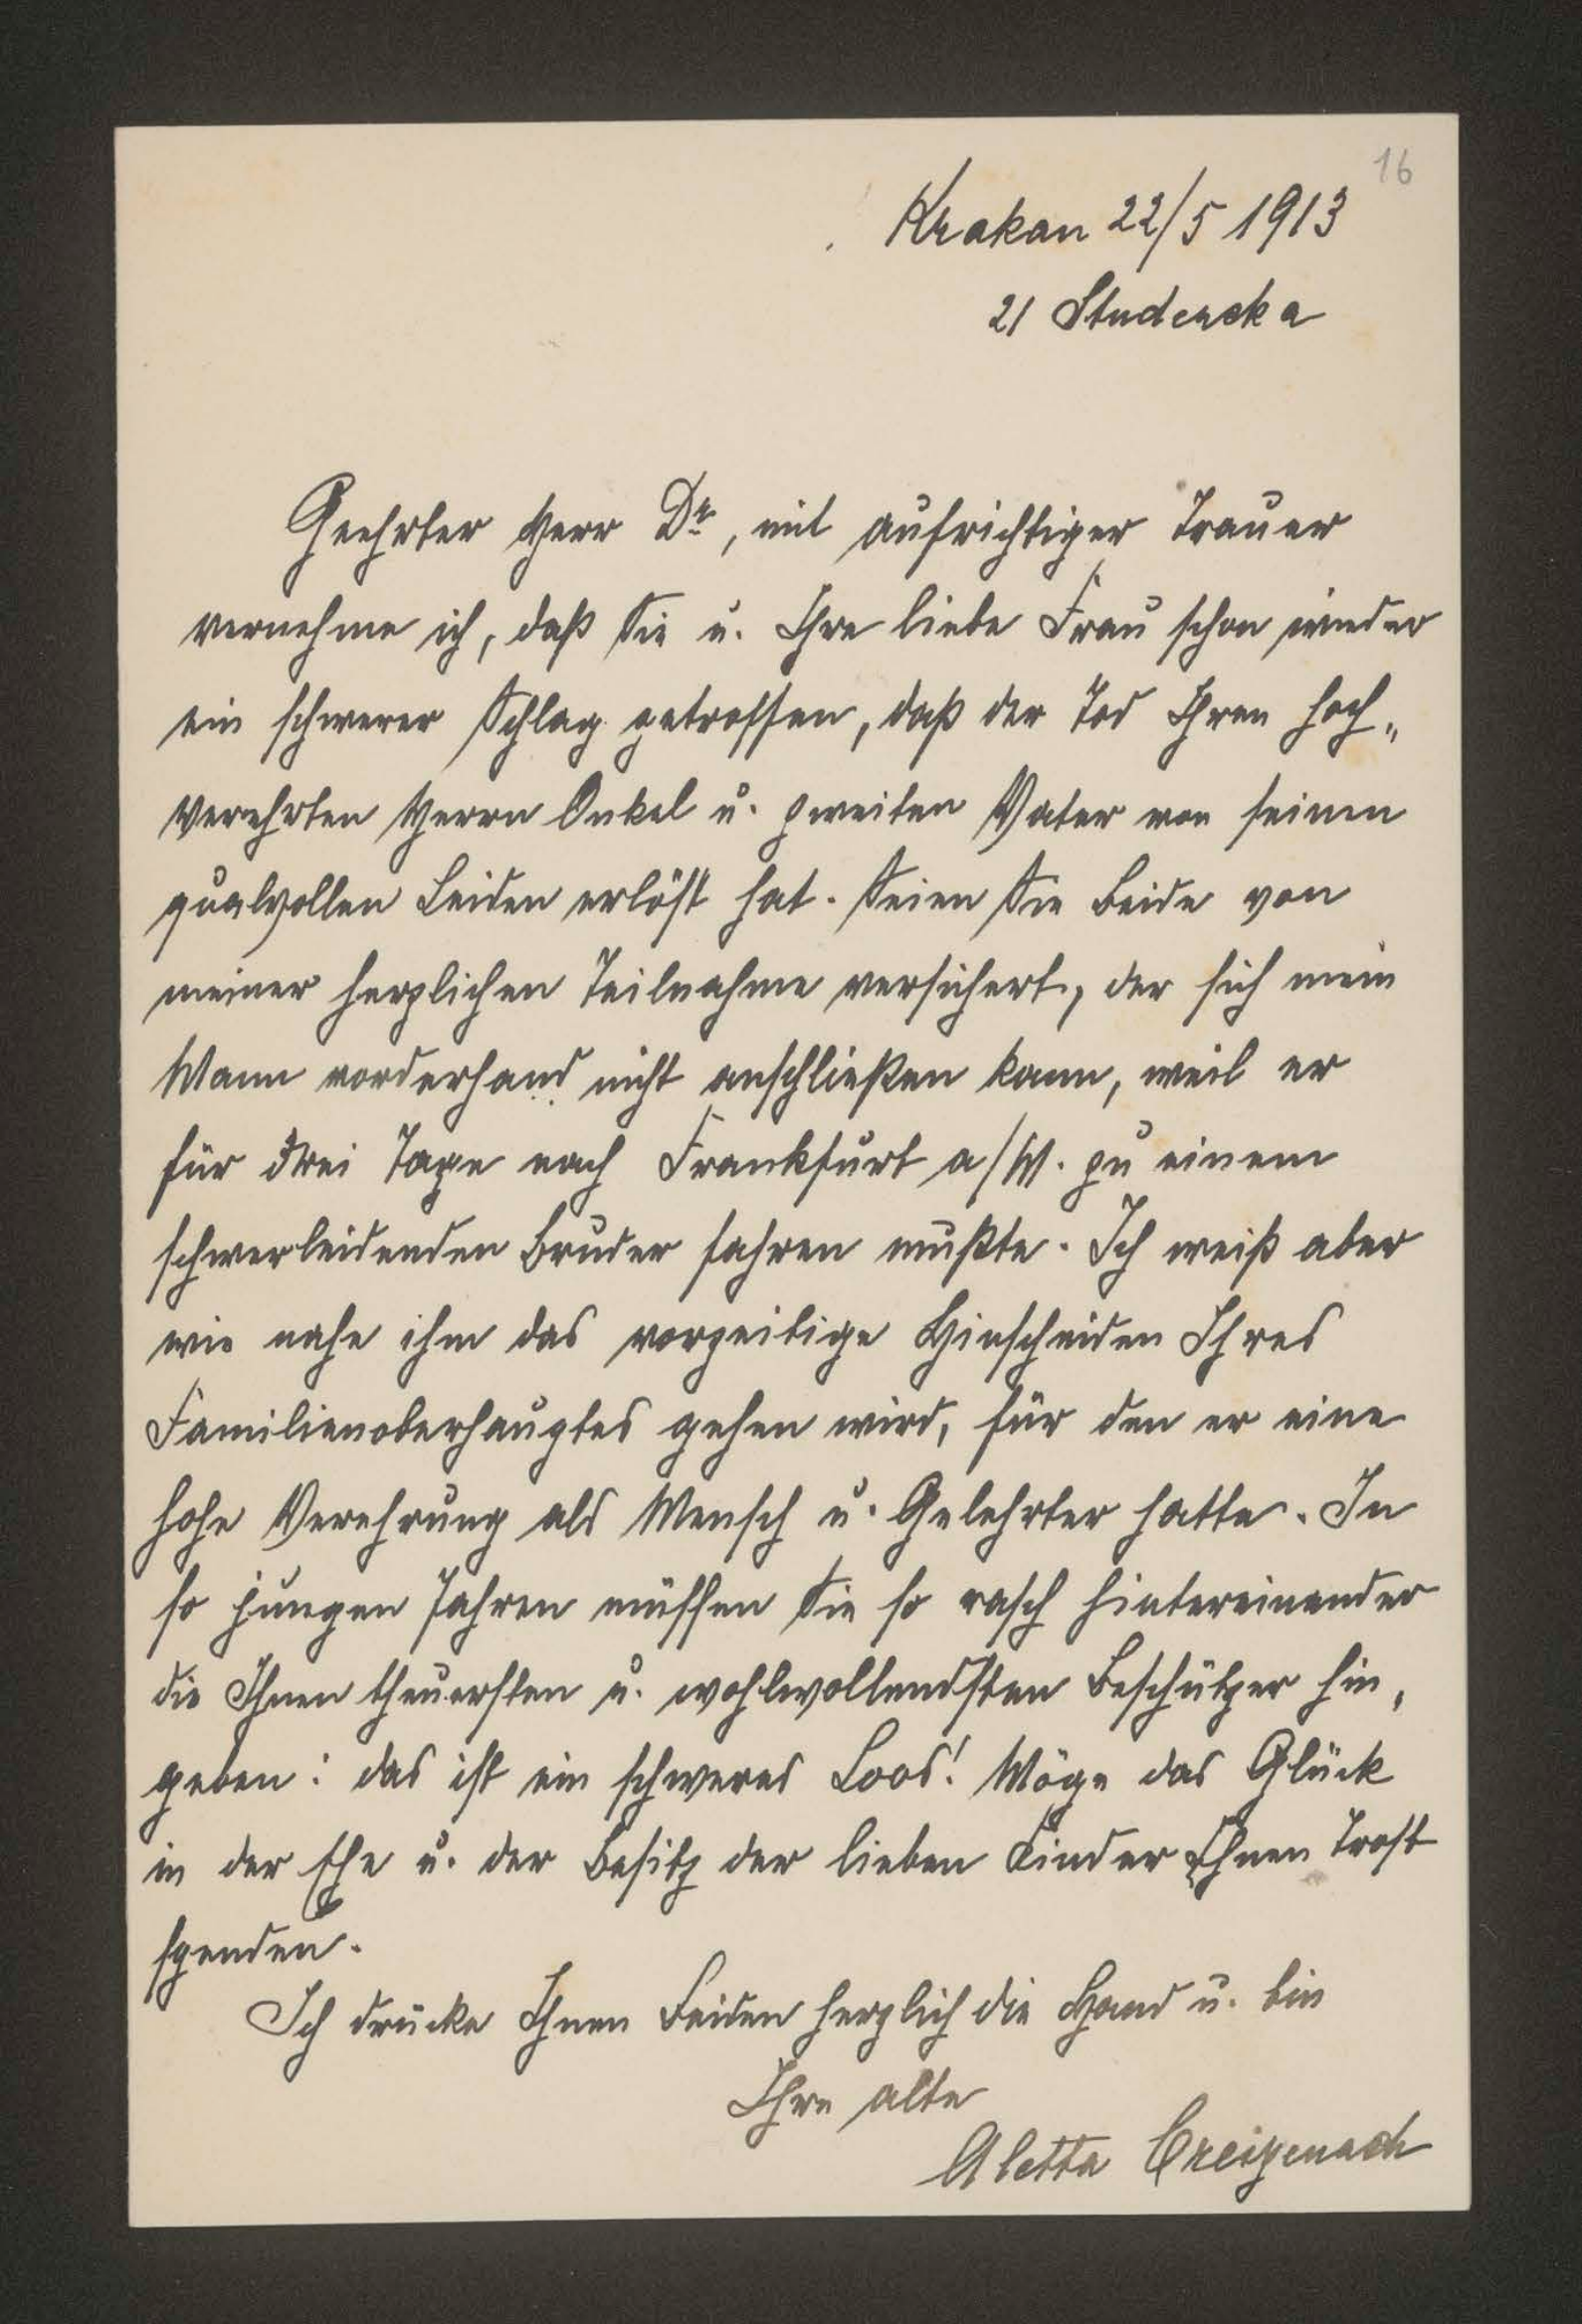 16
Krakau 22/5 1913
21 Studencka
Geehrter Herr Dr, mit aufrichtiger Trauer
vernehme ich, daß Sie u. Ihre liebe Frau schon wieder
ein schwerer Schlag getroffen, daß der Tod Ihren hoch-
verehrten Herrn Onkel u. zweiten Vater von seinen
qualvollen Leiden erlöst hat. Seien Sie Beide von
meiner herzlichen Teilnahme versichert, der sich mein
Mann vorderhand nicht anschließen kann, weil er
für drei Tage nach Frankfurt a/M. zu einem
schwerleidenden Bruder fahren mußte. Ich weiß aber
wie nahe ihm das vorzeitige Hinscheiden Ihres
Familienoberhauptes gehen wird, für den er eine
hohe Verehrung als Mensch u. Gelehrter hatte. In
so jungen Jahren müssen Sie so rasch hintereinander
die Ihnen theuersten u. wohlwollendsten Beschützer hin-
geben: das ist ein schweres Loos! Möge das Glück
in der Ehe u. der Besitz der lieben Kinder Ihnen Trost
spenden.
Ich drücke Ihnen Beiden herzlich die Hand u. bin
Ihre alte
Aletta Creizenach